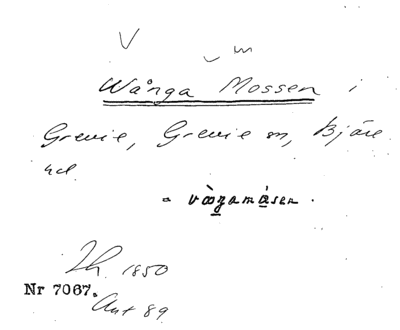 V m
Wånga Mossen i
Grevie, Grevie sn, Bjäre
hd
vàŋamåsen.
Lh. 1850
Nr 7067.
Ant 89